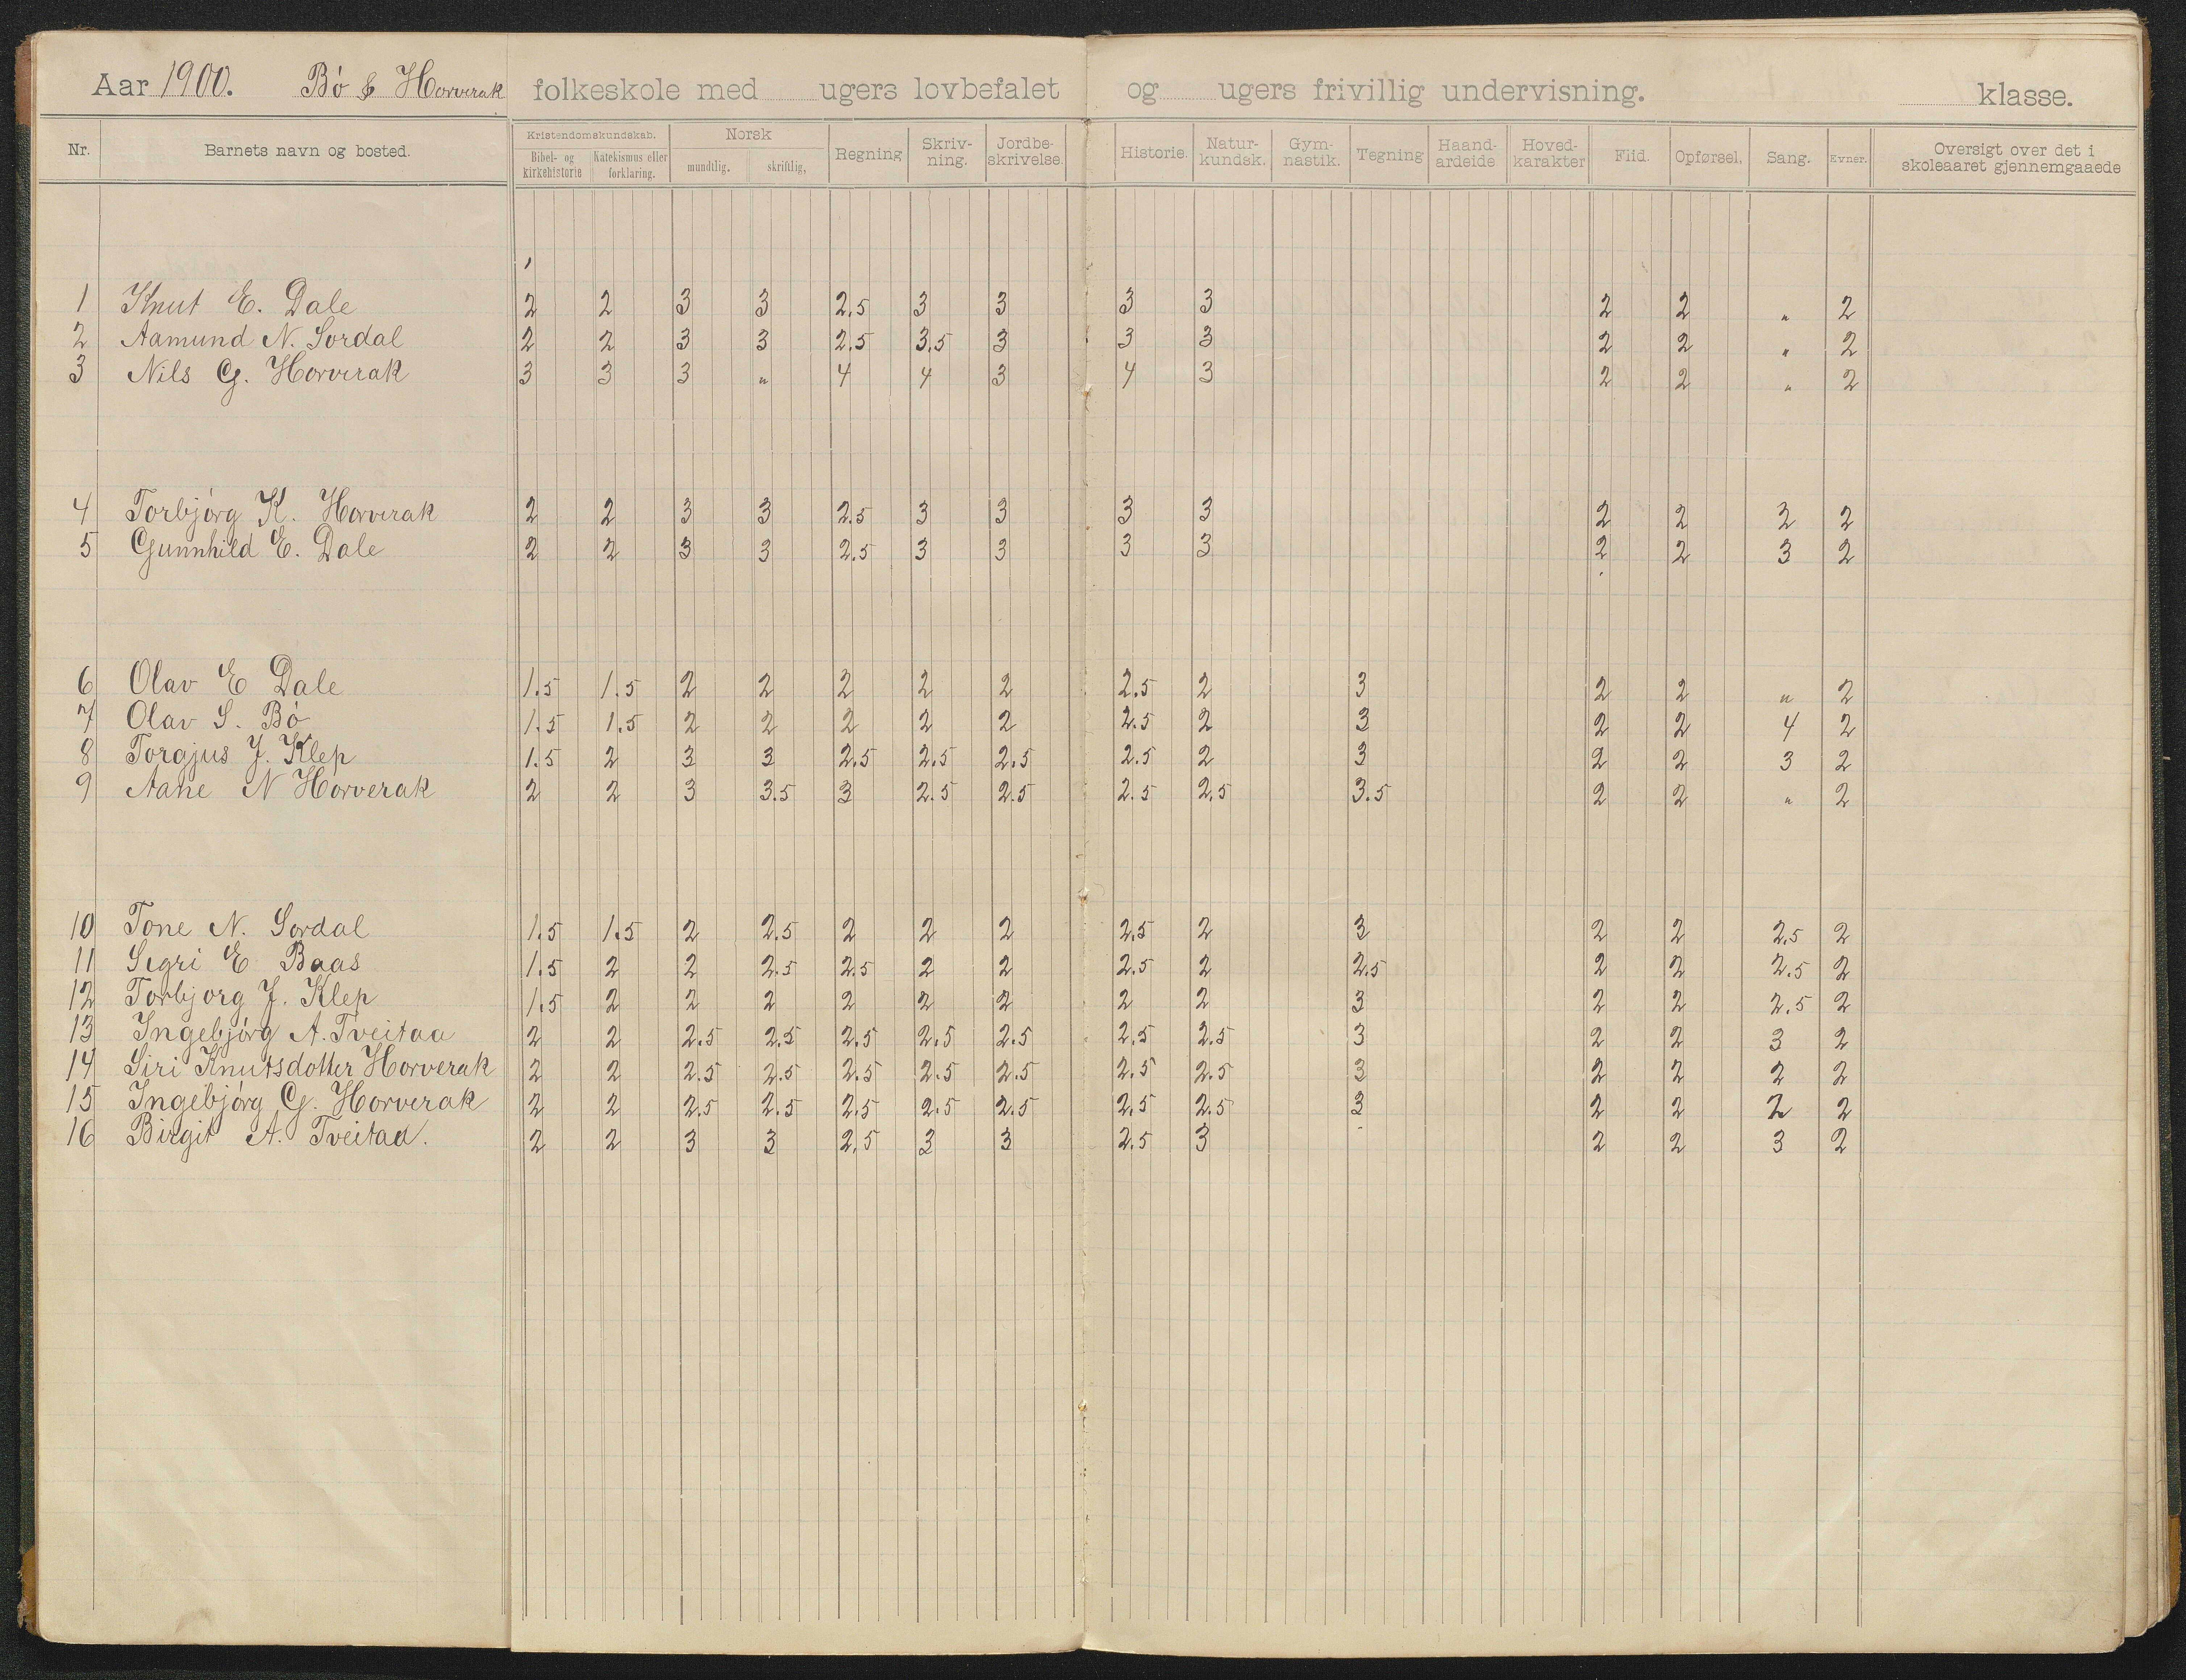 Aar 1900. Bö & Horverak folkeskole med ugers lovbefalet og ugers frivillig undervisning. klasse.
Nr. Barnets navn og bosted. Kristendomskundskab. Bibel- og kirkehistorie Katekismus eller forklaring. Norsk mundtlig. skriftlig, Regning Skriv-ning. Jordbe-skrivelse. Historie. Natur-kundsk. Gym-nastik. Tegning Haand-arbeide Hoved-karakter Flid. Opførsel. Sang. Evner. Oversigt over det i skoleaaret gjennemgaaede
1 Knut E. Dale 2 2 3 3 2,5 3 3 3 3 2 2 " 2
2 Aamund N. Sordal 2 2 3 3 2,5 3,5 3 3 3 2 2 " 2
3 Nils G. Horverak 3 3 3 " 4 4 3 4 3 2 2 " 2
4 Torbjórg K. Horverak 2 2 3 3 2.5 3 3 3 3 2 2 2 2
5 Gunnhild E. Dale 2 2 3 3 2.5 3 3 3 3 2 2 3 2
6 Olav E Dale 1.5 1.5 2 2 2 2 2 2.5 2 3 2 2 " 2
7 Olav S. Bó 1.5 1.5 2 2 2 2 2 2.5 2 3 2 2 4 2
8 Torgjus J. Klep 1.5 2 3 3 2,5 2,5 2,5 2.5 2 3 2 2 3 2
9 Aane N Horverak 2 2 3 3.5 3 2.5 2.5 2.5 2,5 3.5 2 2 " 2
10 Tone N. Sordal 1.5 1.5 2 2.5 2 2 2 2,5 2 3 2 2 2,5 2
11 Sigri E Baas 1.5 2 2 2.5 2.5 2 2 2.5 2 2.5 2 2 2.5 2
12 Torbjorg J. Klep 1.5 2 2 2 2 2 2 2 2 3 2 2 2.5 2
13 Ingebjórg A. Tveitaa 2 2 2.5 2.5 2.5 2.5 2.5 2.5 2.5 3 2 2 3 2
14 Siri Knutsdotter Horverak 2 2 2.5 2.5 2.5 2.5 2.5 2.5 2.5 3 2 2 2 2
15 Ingebjórg G. Horverak 2 2 2.5 2.5 2.5 2.5 2.5 2.5 2.5 3 2 2 2 2
16 Birgit A. Tveitaa. 2 2 3 3 2,5 3 3 2.5 3 2 2 3 2